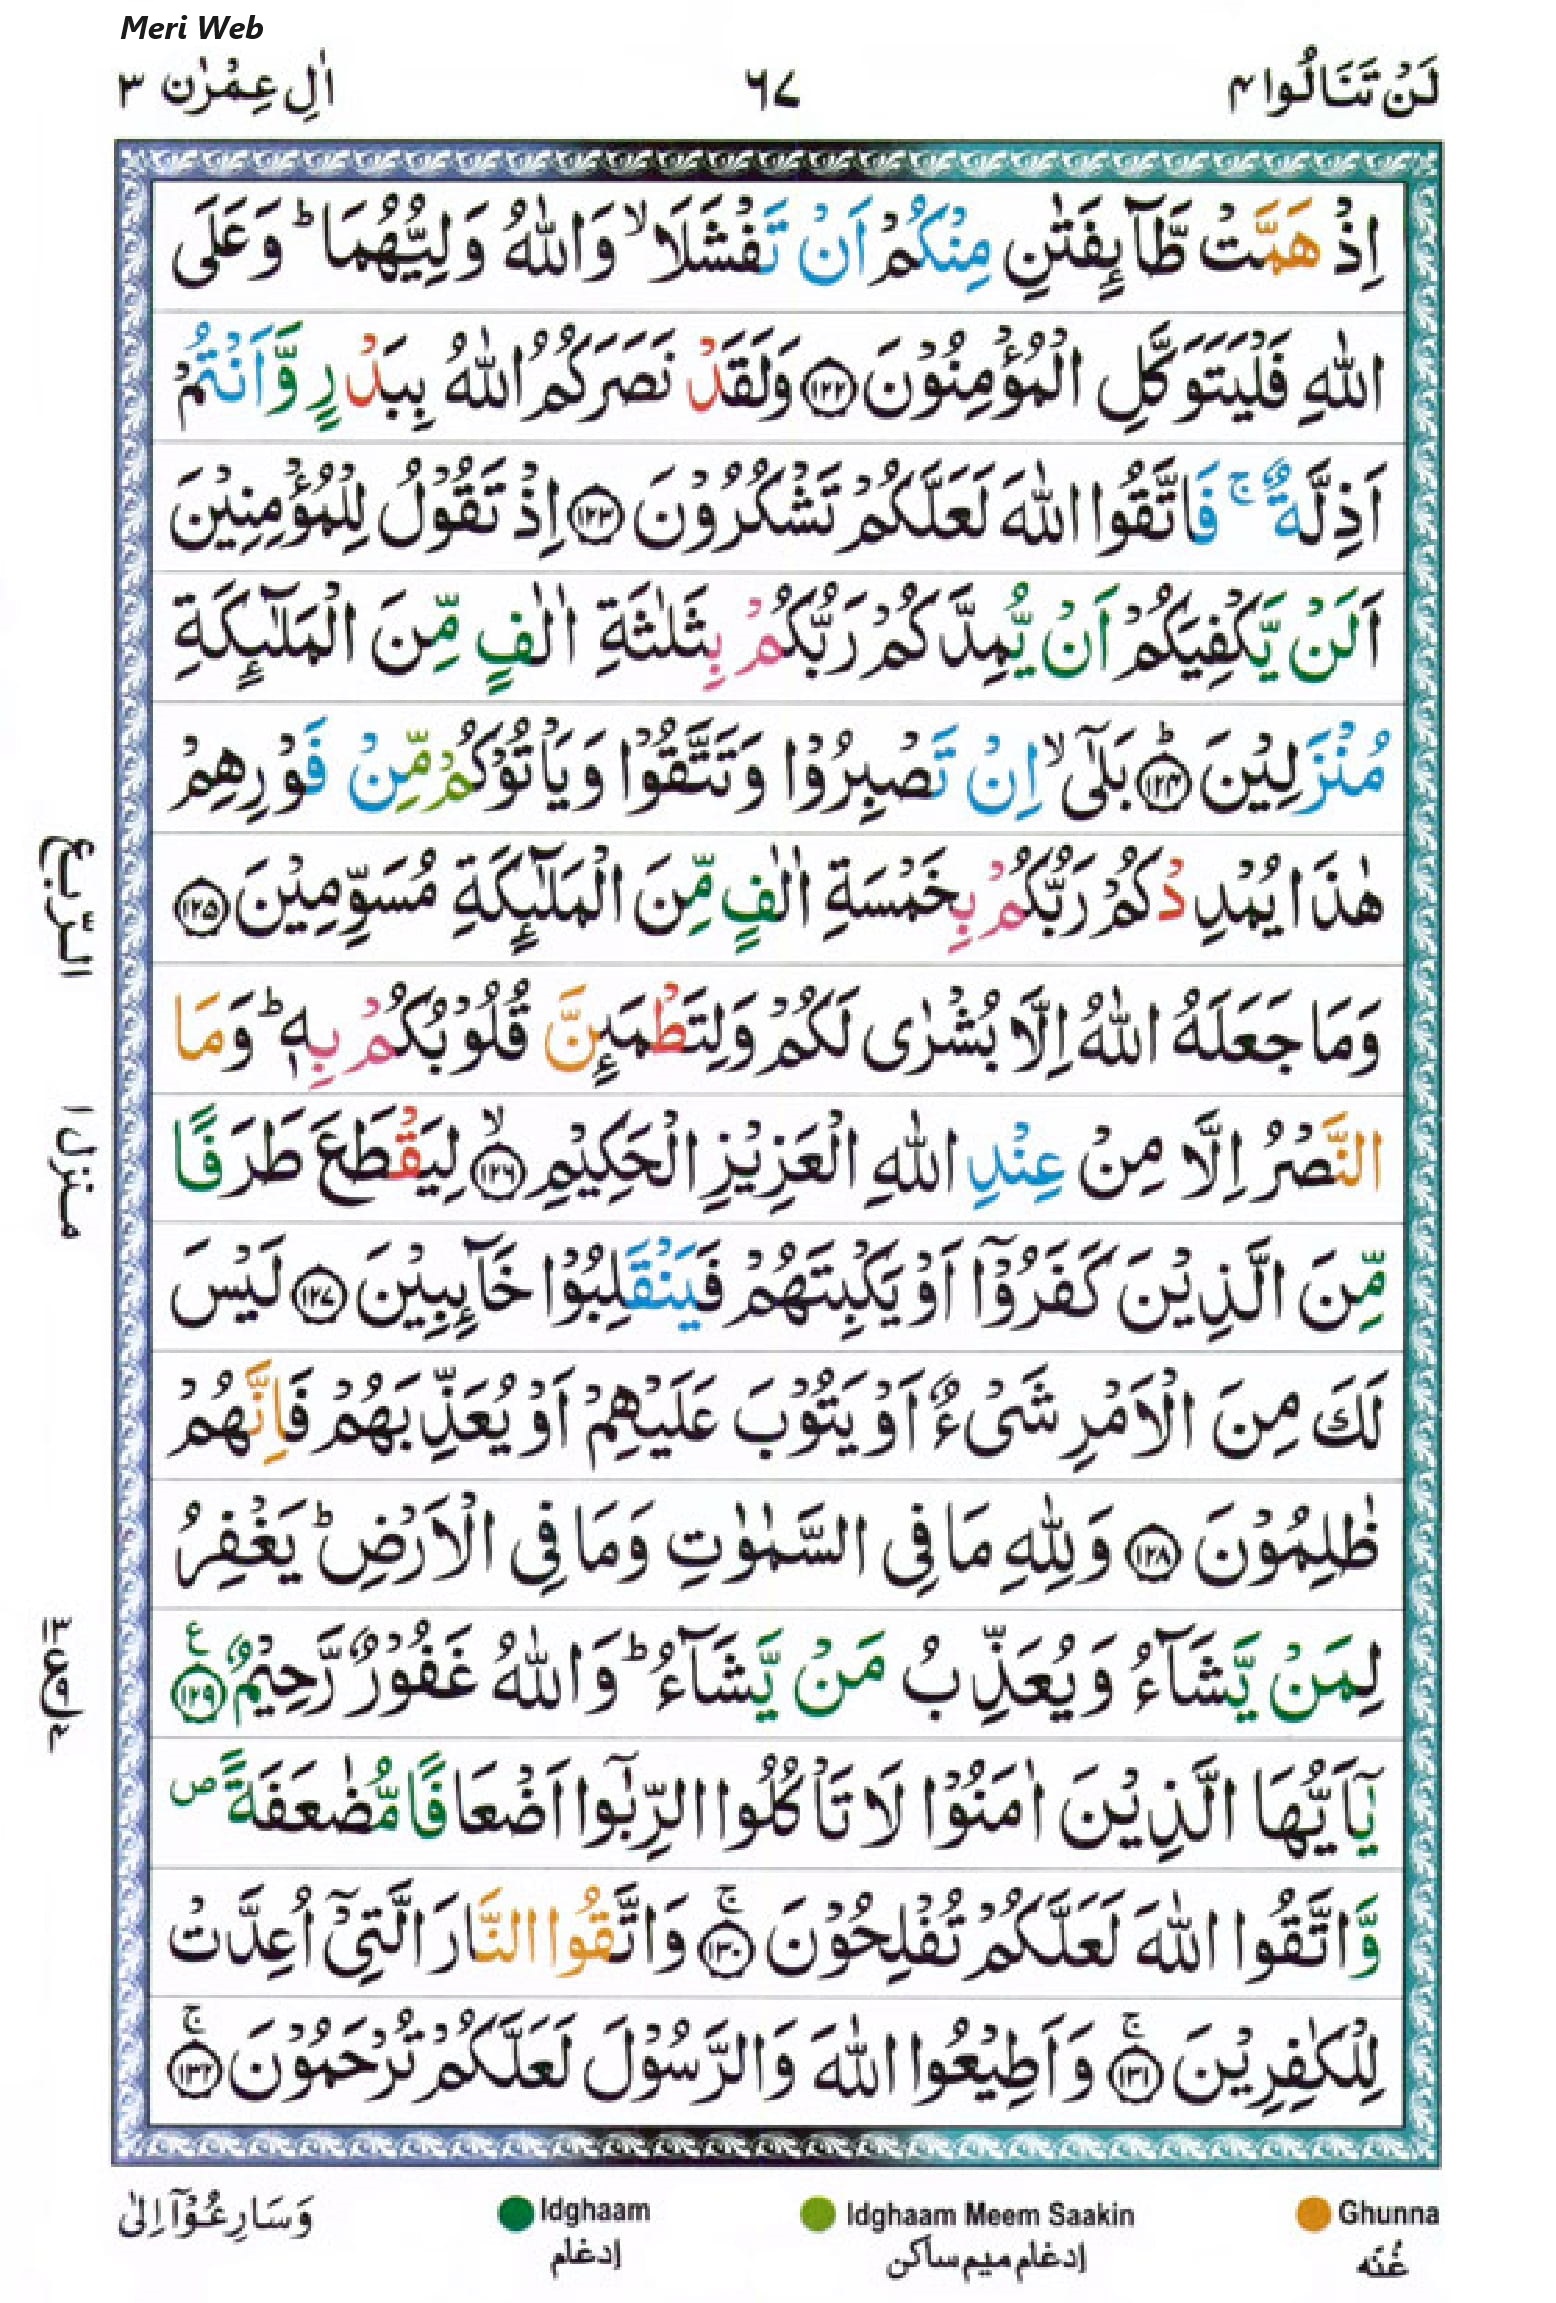 Meri Web
لَنْ تَنَالُوا ۴ ٦٧ اٰلِ عِمْرٰن ٣
اِذْ هَمَّتْ طَّآىِٕفَتٰنِ مِنْكُمْ اَنْ تَفْشَلَا ۙ وَاللّٰهُ وَلِیُّهُمَا ؕ وَعَلَی
اللّٰهِ فَلْیَتَوَكَّلِ الْمُؤْمِنُوْنَ ﴿۱۲۲﴾ وَلَقَدْ نَصَرَكُمُ اللّٰهُ بِبَدْرٍ وَّاَنْتُمْ
اَذِلَّةٌ ۚ فَاتَّقُوا اللّٰهَ لَعَلَّكُمْ تَشْكُرُوْنَ ﴿۱۲۳﴾ اِذْ تَقُوْلُ لِلْمُؤْمِنِیْنَ
اَلَنْ یَّكْفِیَكُمْ اَنْ یُّمِدَّكُمْ رَبُّكُمْ بِثَلٰثَةِ اٰلٰفٍ مِّنَ الْمَلٰٓىِٕكَةِ
مُنْزَلِیْنَ ﴿۱۲۴﴾ؕ بَلٰۤی ۙ اِنْ تَصْبِرُوْا وَتَتَّقُوْا وَیَاْتُوْكُمْ مِّنْ فَوْرِهِمْ
هٰذَا یُمْدِدْكُمْ رَبُّكُمْ بِخَمْسَةِ اٰلٰفٍ مِّنَ الْمَلٰٓىِٕكَةِ مُسَوِّمِیْنَ ﴿۱۲۵﴾
وَمَا جَعَلَهُ اللّٰهُ اِلَّا بُشْرٰی لَكُمْ وَلِتَطْمَىِٕنَّ قُلُوْبُكُمْ بِهٖ ؕ وَمَا
النَّصْرُ اِلَّا مِنْ عِنْدِ اللّٰهِ الْعَزِیْزِ الْحَكِیْمِ ﴿۱۲۶﴾ۙ لِیَقْطَعَ طَرَفًا
مِّنَ الَّذِیْنَ كَفَرُوْۤا اَوْ یَكْبِتَهُمْ فَیَنْقَلِبُوْا خَآىِٕبِیْنَ ﴿۱۲۷﴾ لَیْسَ
لَكَ مِنَ الْاَمْرِ شَیْءٌ اَوْ یَتُوْبَ عَلَیْهِمْ اَوْ یُعَذِّبَهُمْ فَاِنَّهُمْ
ظٰلِمُوْنَ ﴿۱۲۸﴾ وَلِلّٰهِ مَا فِی السَّمٰوٰتِ وَمَا فِی الْاَرْضِ ؕ یَغْفِرُ
لِمَنْ یَّشَآءُ وَیُعَذِّبُ مَنْ یَّشَآءُ ؕ وَاللّٰهُ غَفُوْرٌ رَّحِیْمٌ ﴿۱۲۹﴾ ع
یٰۤاَیُّهَا الَّذِیْنَ اٰمَنُوْا لَا تَاْكُلُوا الرِّبٰۤوا اَضْعَافًا مُّضٰعَفَةً ۪
وَّاتَّقُوا اللّٰهَ لَعَلَّكُمْ تُفْلِحُوْنَ ﴿۱۳۰﴾ۚ وَاتَّقُوا النَّارَ الَّتِیْۤ اُعِدَّتْ
لِلْكٰفِرِیْنَ ﴿۱۳۱﴾ۚ وَاَطِیْعُوا اللّٰهَ وَالرَّسُوْلَ لَعَلَّكُمْ تُرْحَمُوْنَ ﴿۱۳۲﴾ۚ
الرّبع
منزل ۱
Ghunna Idghaam Meem Saakin Idghaam وَسَارِعُوْۤا اِلٰی
غُنّه إدغام میم ساكن إدغام